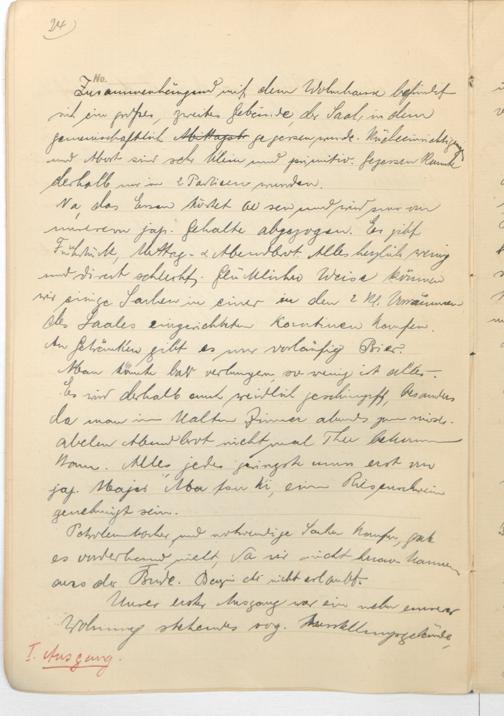 24)
No.
Zusammenhängend mit dem Wohnhause befindet
sich ein großes, zweites Gebäude, der Saal, in dem
gemeinschaftlich Mittags gegessen wurde. Kücheneinrichtungen
und Abort sind sehr klein und primitiv. Gegessen konnte
deshalb nur in 2 Partieen werden.
Na, das Essen kostet und wird uns von
unserem jap. Gehalte abgezogen. Es gibt
Frühstück, Mittag- & Abendbrot. Alles herzlich wenig
und direkt schlecht. Glücklicher Weise können
wir einige Sachen in einer in den 2 kl.
des Saales eingerichteten Kantinen kaufen.
An Getränken gibt es nur vorläufig Bier.
Man könnte bald verhungern, so wenig ist alles.
Es wird deshalb auch weidlich geschimpft, besonders
da man im kalten Zimmer abends zum miser-
abelen Abendbrot nicht mal Thee bekommen
kann. Alles, jedes geringste muss erst vom
jap. Major, einen Riesenschein
genehmigt sein.
Petroleumkocher und notwendige Sachen kaufen, gab
es vorderhand nicht, da wir nicht heraus kommen
aus der Bude. Bargeld nicht erlaubt.
Unser erster Ausgang war ein neben unserer
Wohnung stehendes sog. Ausstellungsgebäude,
I. Ausgang.